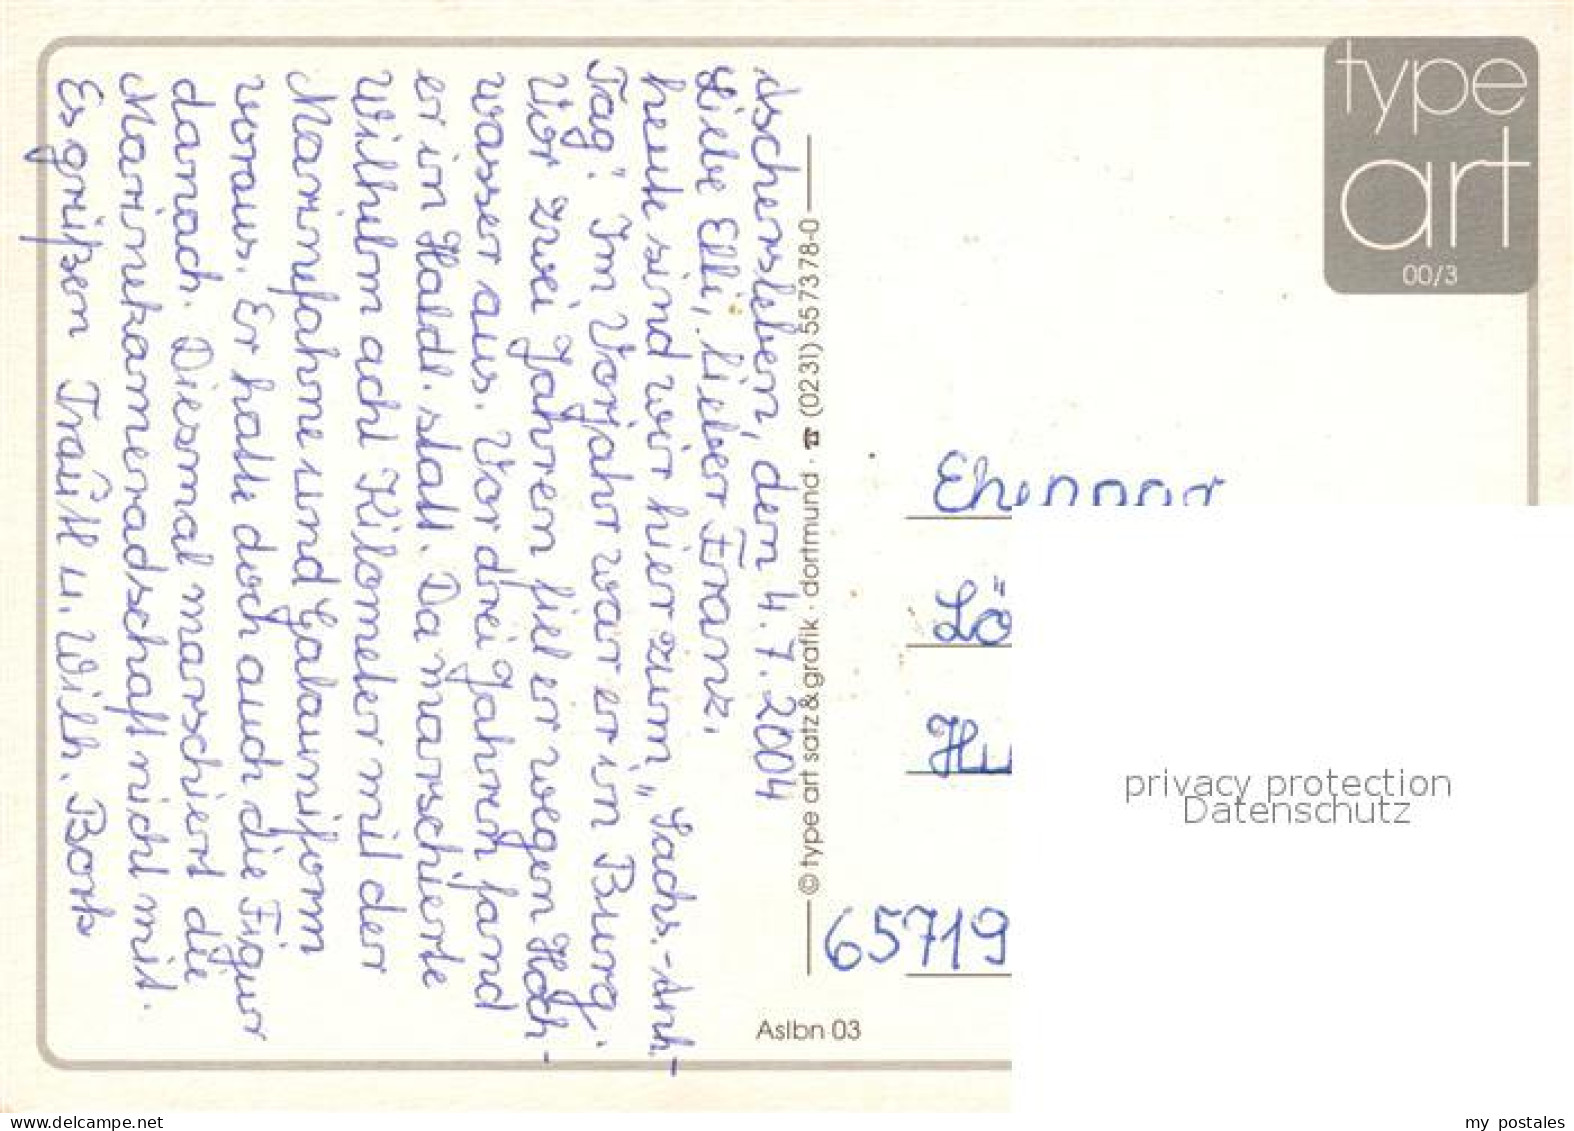 Aschersleben, den 4.7.2004
Liebe Elli, lieber Frank,
heute sind wir hier zum „Sachs.-Anh.-
Tag“. Im Vorjahr war er in Burg.
Vor zwei Jahren fiel er wegen Hoch-
wasser aus. Vor drei Jahren fand
er in Haldl. statt. Da marschierte
Wilhelm acht Kilometer mit der
Marinefahne und Galauniform
voraus. Er hatte doch auch die Figur
danach. Diesmal marschiert die
Marinekameradschaft nicht mit.
Es grüßen Trautl u. Wilh. Bork
© type art satz & grafik · dortmund · ☎ (0231) 557378-0
type
art
00/3
Ehepaar
Lö
Hu
65719
Aslbn 03
privacy protection
Datenschutz
www.delcampe.net
my_postales